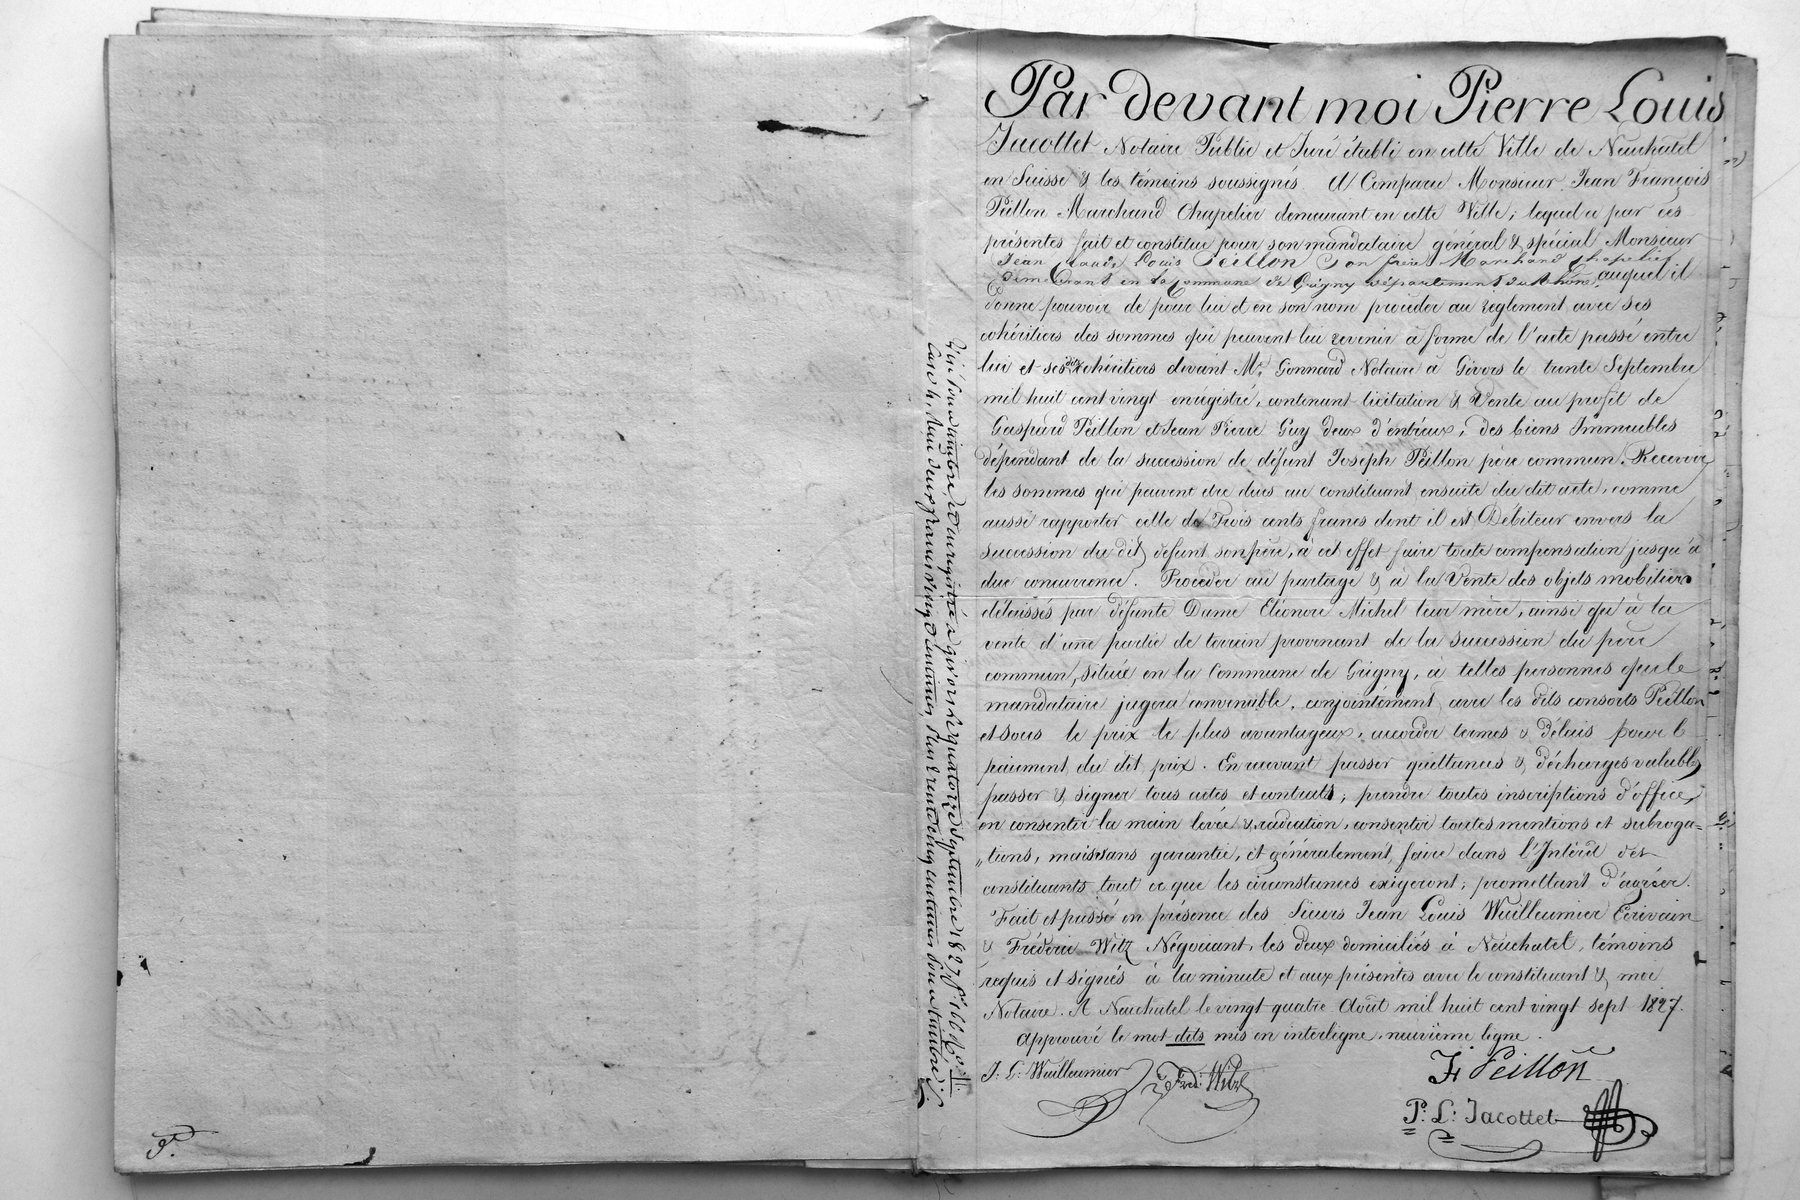 Par devant moi Pierre Louis
Jacottet Notaire Public et Juré établi en cette Ville de Neuchatel
en Suisse & les témoins soussignés. A Comparu Monsieur Jean François
Peillon Marchand Chapelier demeurant en cette Ville; lequel a par ces
présentes fait et constitue pour son mandataire général & spécial Monsieur
Jean Louis Peillon Son frère Marchand chapelier
demeurant en la Commune de Grigny département du Rhône, auquel il
donne pouvoir de pour lui et en son nom procéder au règlement avec ses
cohéritiers des sommes qui peuvent lui revenir à forme de l'acte passé entre
lui et ses dits cohéritiers devant Mr. Gonnard Notaire à Givors le trente Septembre
mil huit cent vingt enrégistré, contenant licitation & Vente au profit de
Gaspard Peillon et Jean Pierre Guy deux d'entr'eux, des biens Immeubles
dépendant de la succession de défunt Joseph Peillon père commun. Recevoir
les sommes qui peuvent etre dues au constituant ensuite du dit acte, comme
aussi rapporter celle de Trois cents francs dont il est Débiteur envers la
succession du dit défunt son père, à cet effet faire toute compensation jusqu'à
due concurrence. Procéder au partage & à la Vente des objets mobiliers
délaissés par défunte Dame Eléonore Michel leur mère, ainsi qu'à la
vente d'une partie de terrain provenant de la succession du père
commun, située en la Commune de Grigny, à telles personnes que le
mandataire jugera convenable, conjointement avec les dits consorts Peillon
et sous le prix le plus avantageux, accorder termes & délais pour le
paiement du dit prix. En recevant passer quittances & décharges valables
passer & signer tous actes et contrats; prendre toutes inscriptions d'office,
en consentir la main levée & radiation, consentir toutes mentions et subroga=
"tions, mais sans garantie, et généralement faire dans l'Intérêt des
constituants tout ce que les circonstances exigeront; promettant d'agréer.
Fait et passé en présence des Sieurs Jean Louis Wuilleumier Ecrivain
& Fréderic Witz Négociant, les deux domiciliés à Neuchatel, témoins
requis et signés à la minute et aux présentes avec le constituant & moi
Notaire. A Neuchatel le vingt quatre Août mil huit cent vingt sept 1827.
approuvé le mot dits mis en interligne, neuvième ligne.
J: L: Wuilleumier
Fréd: Witz
F: Peillon
P: L: Jacottet
enregistré à givors le quatorze Septembre 1827 fo. 166
Case 4, deux francs vingt centimes